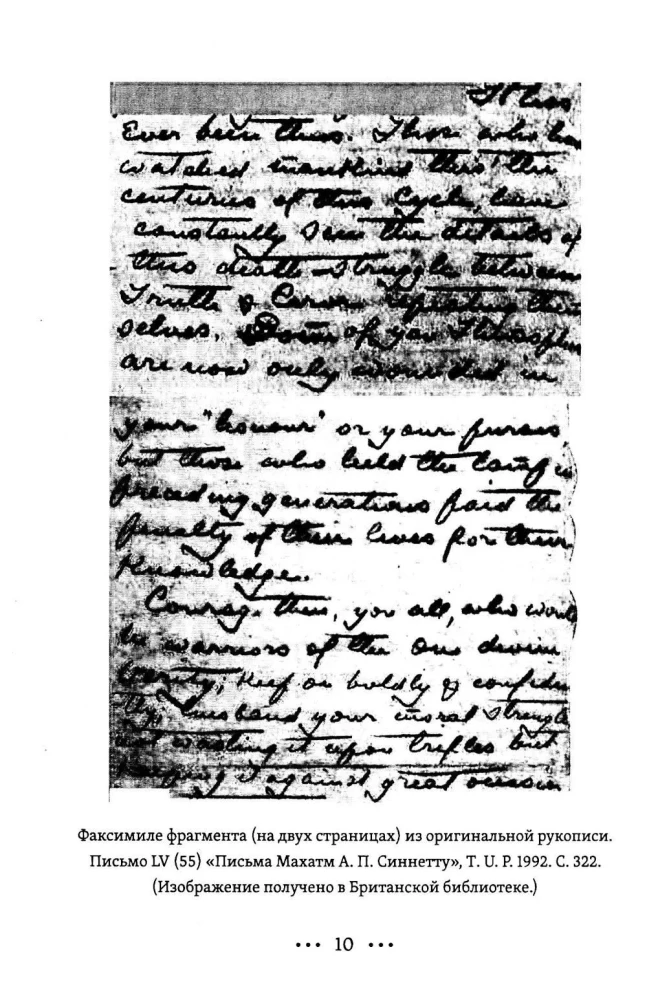 It has
Ever been thus. Those who have
watched mankind thro' the
centuries of this Cycle, have
constantly seen the details of
this death-struggle between
Truth & Error repeating them
selves. Some of you Theosophists
are now only wounded in
your "honour" or your purses,
but those who held the lamp in
preceding generations paid the
penalty of their lives for their
knowledge.
Courage then, you all, who would
be warriors of the One divine
Verity; Keep on boldly & confiden
tly; husband your moral strength
not wasting it upon trifles but
keeping it against great occasions
Факсимиле фрагмента (на двух страницах) из оригинальной рукописи.
Письмо LV (55) «Письма Махатм А. П. Синнетту», T. U. P. 1992. С. 322.
(Изображение получено в Британской библиотеке.)
••• 10 •••